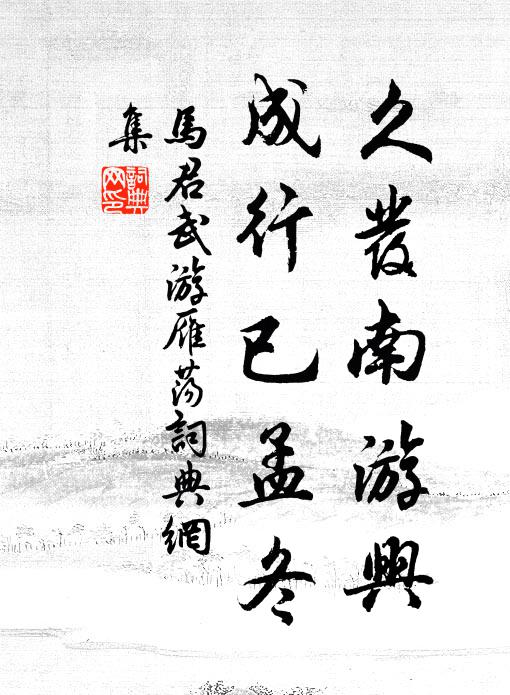 久發南游興
成行已孟冬
馬君武游雁蕩詞典網
集
詞典網印